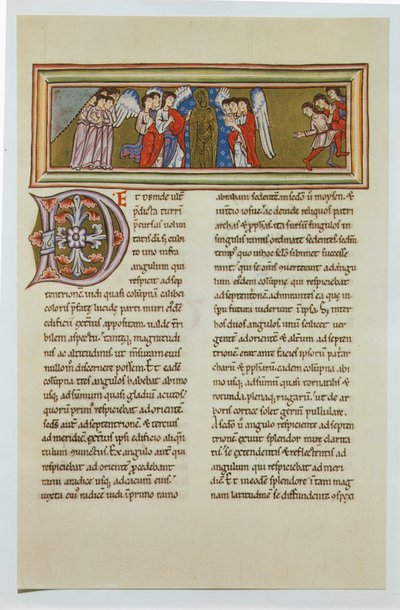 Et deinde ult͛
p̄dictā turri
p̄cursus volun
tatis dī. s; cubi
to uno infra
angulum qui
respicit adsep
tentrionē. uidi quasi colūpnā calibei
coloris p̄fatę lucidę parti muri eiusdē
edificii ext̄ius appositam. ualde terri
bilem aspectu. tantęq; magnitudi
nis ac altitudinis ut mensuram eius
nullom discernere possem. Et eadē
colūpna tres angulos habebat abimo
usq; adsūmum quasi gladiū acutos.
quorū primus respiciebat adorientē.
scds aut̄ adseptentrionē. & tercius
ad meridiē. ext̄ius ipsi edificio aliqn
tulum 9iunctus. Ex angulo aut̄ qui
respiciebat ad orientē p̄cedebant
rami aradice usq; adcacumen eius.
iuxta cui' radicē uidi inprimo ramo
abraham sedentē. insc̄do ū moysen. &
intcio iosue. ac deinde reliquos patri
archas & pp̄hās. ita sursū singulos in
singulis ramis ordinatē sedentes scdm
tempus quo inhoc sc̄lo sibimet successe
rant. qui se om̄s uerterant adangu
lum eiusdem colūpnę qui respiciebat
adseptentrionē. admirantes ea que in
sp̄u futura uiderunt in ipsa. S; inter
hos duos angulos. unū scilicet uer
gentē adorientē & alterum adsepten
trionē. erat ante facies ipsorū patar
charū & pp̄harū eadem colūpna ab i
mo usq; adsummū quasi tornatilis &
rotunda. plenaq; rugarū. ut de ar
boris cortice solet germē pullulare.
A scdo ū angulo respiciente adsepten
trionē. exiuit splendor mirę clarita
tis se extendentis & reflectentis ad
angulum qui respiciebat ad meri
diē. Et ineodē splendore in tam mag
nam latitudinē se diffundente. 9spexi